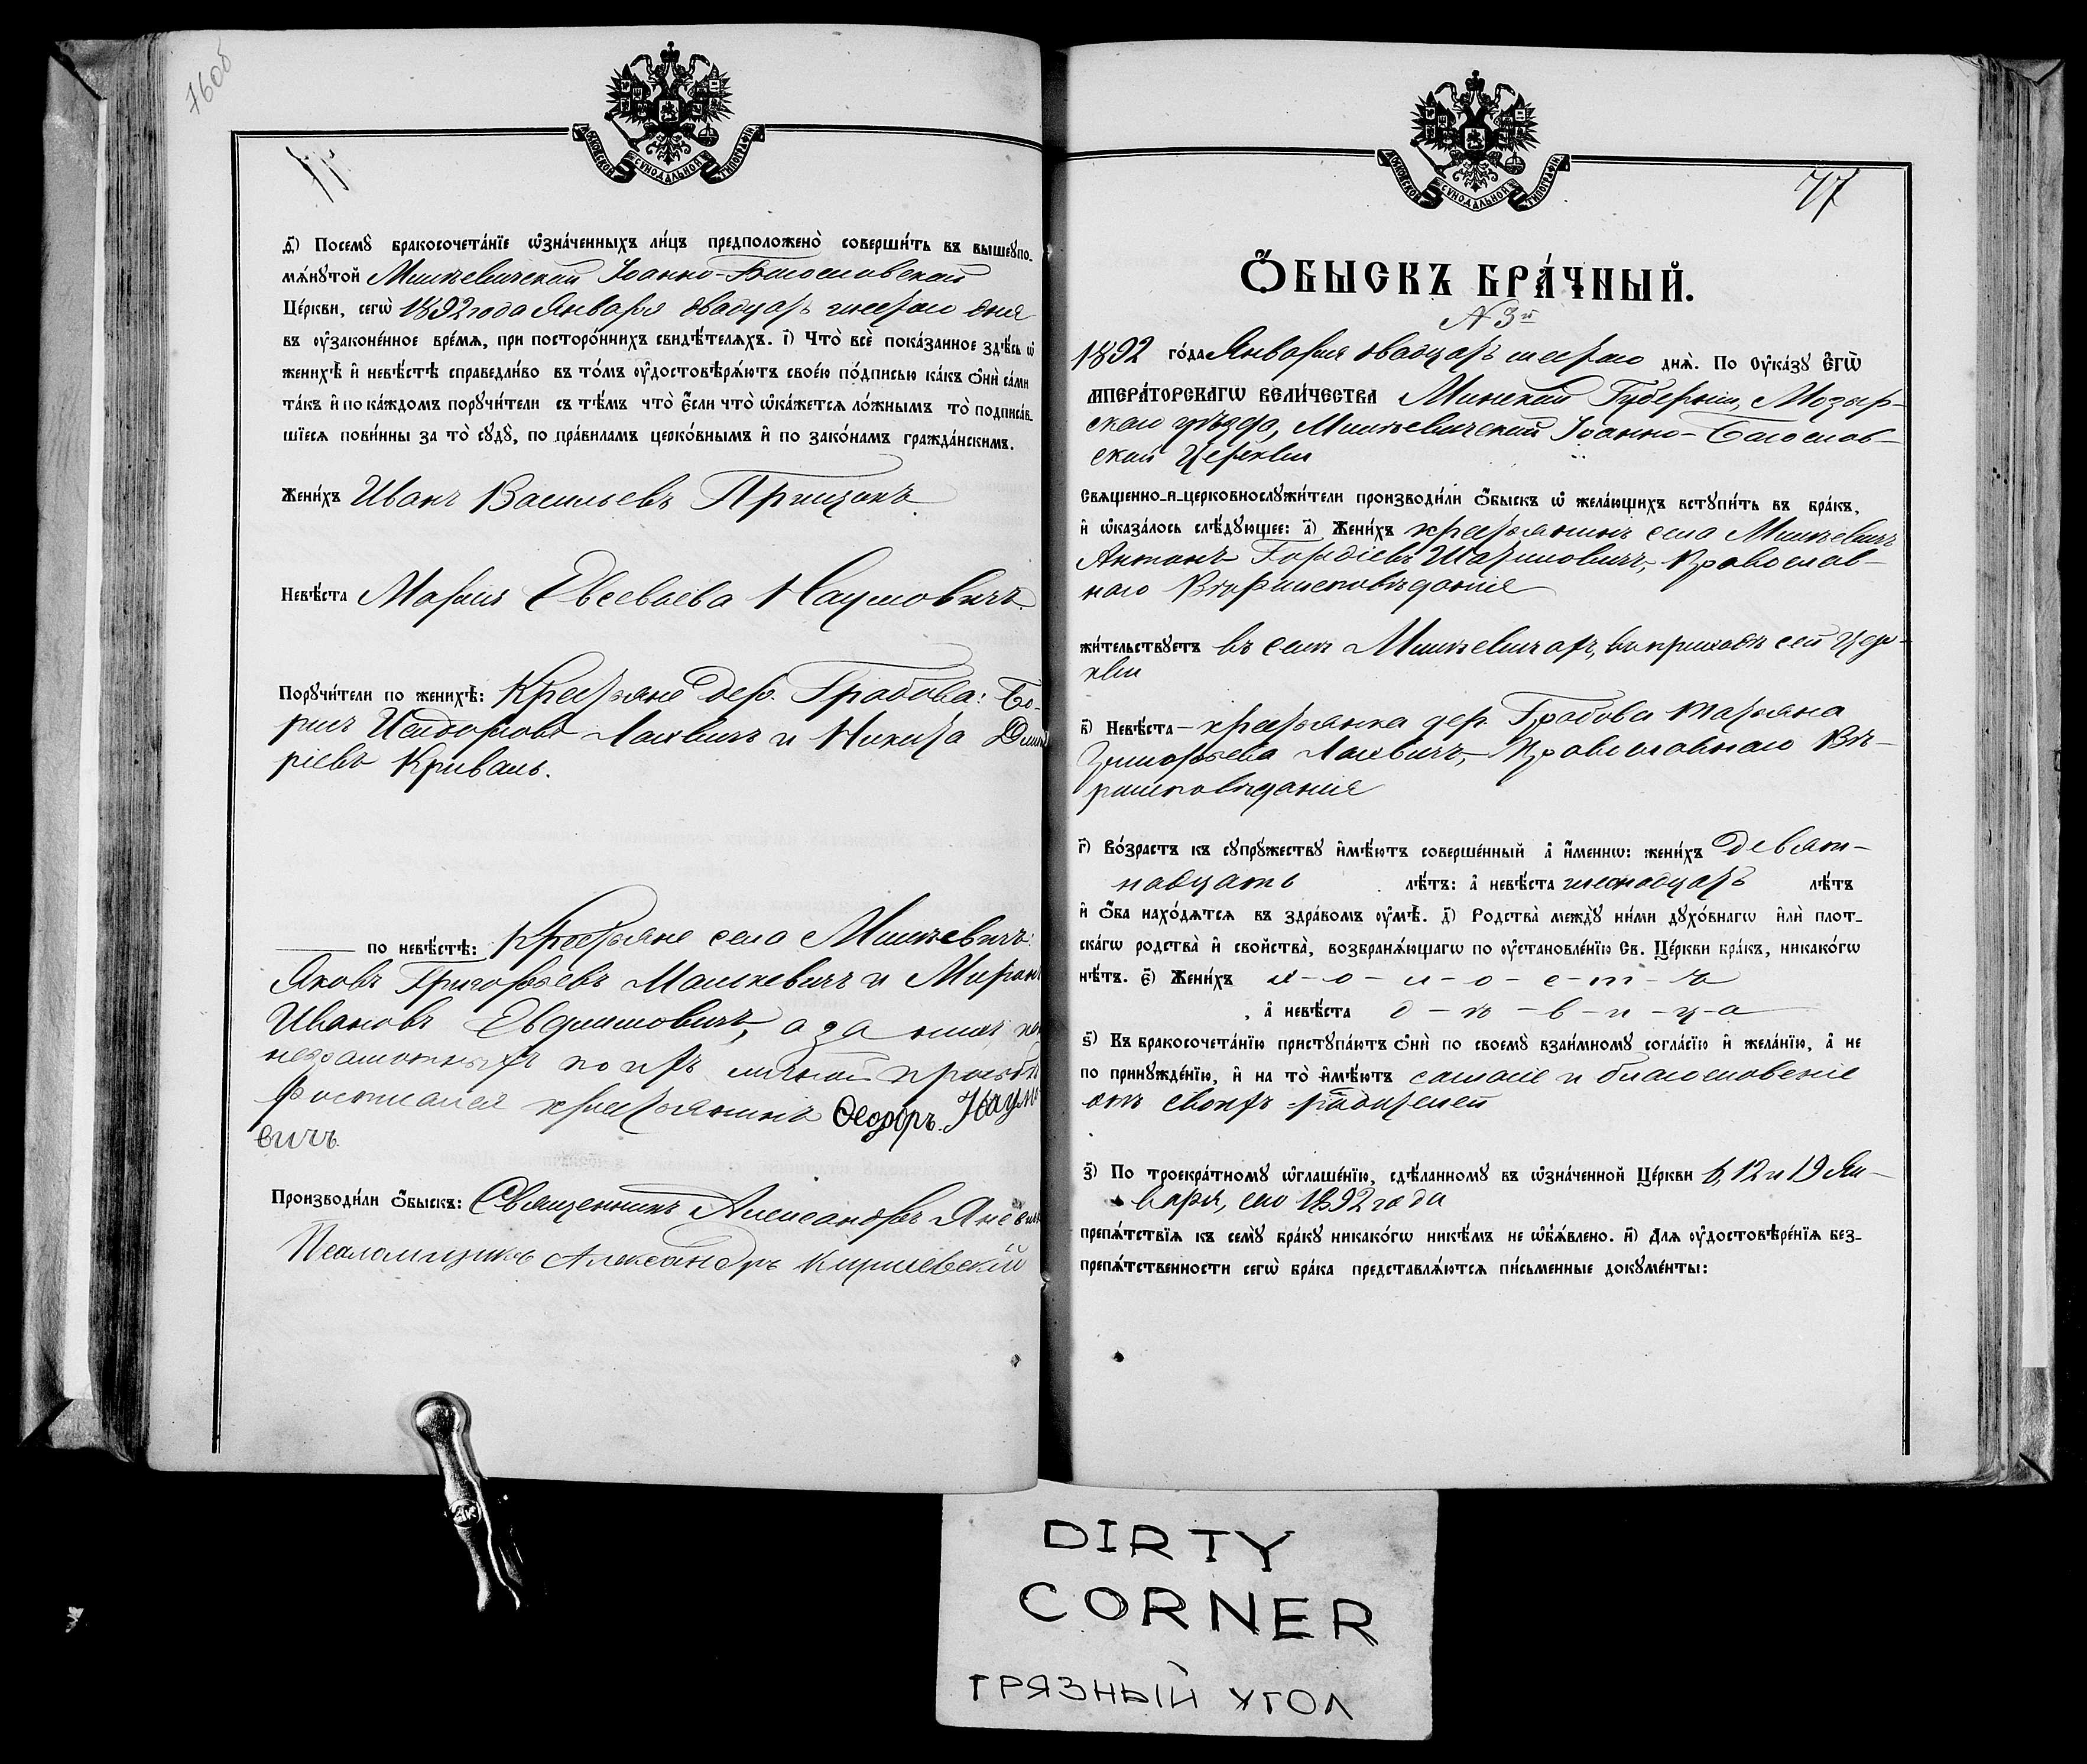 76об
МОСКОВСКОЙ СУНОДАЛЬНОЙ ТИПОГРАФІИ
д҃) Посемꙋ бракосочета́нїе ѡ҆зна́ченныхъ ли́цъ предположено̀ соверши́ть въ вышеꙋпо-
мѧ́нꙋтой Мишъевичской Іоанно-Богословской
Це́ркви, сегѡ̀ 1892 года Января двадцать шестаго дня
въ ᲂу҆зако́ненное вре́мѧ, при посторо́ннихъ свидѣ́телѧхъ. і҃) Что̀ всѐ пока́занное здѣ́сь ѡ҆
женихѣ̀ и҆ невѣ́стѣ справедли́во въ то́мъ ᲂу҆достовѣрѧ́ютъ свое́ю по́дписью ка́къ ѻ҆нѝ са́ми
та́къ и҆ по ка́ждомъ порꙋчи́тели съ тѣ́мъ что̀ є҆́сли что̀ ѡ҆ка́жетсѧ ло́жнымъ то̀ подписа́в-
шїесѧ пови́нны за то̀ сꙋдꙋ̀, по пра́виламъ церко́внымъ и҆ по зако́намъ гражда́нскимъ.
Жени́хъ Иванъ Васильевъ Прищикъ
Невѣ́ста Марія Евсеваева Наумовичъ
Порꙋчи́тели по женихѣ̀: Крестьяне дер. Грабова: Бо-
рисъ Исидоровъ Лахвичъ и Никита Дмит
ріевъ Криваль.
по невѣ́стѣ: Крестьяне села Мишъевичъ:
Яковъ Григорьевъ Машкевичъ и Миронъ
Ивановъ Евфимовичъ, а за нихъ
неграмотныхъ по ихъ личной просьбѣ
росписался крестьянинъ Ѳеодоръ Наумо
вичъ.
Производи́ли ѻ҆́быскъ: Священникъ Александръ
Псаломщикъ Александръ Киршевскій
МОСКОВСКОЙ СУНОДАЛЬНОЙ ТИПОГРАФІИ
77
Ѻ҆БЫСКЪ БРА́ЧНЫЙ.
N 3й
1892 го́да Января двадцать шестаго днѧ̀. По ᲂу҆ка́зꙋ Є҆ГѠ̀
ИМПЕРА́ТОРСКАГѠ ВЕЛИ́ЧЕСТВА Минской Губерніи, Мозыр-
скаго уѣзда, Мишъевичской Іоанно-Богослов-
ской Церкви
Свѧщенно-и-церковнослꙋжи́тели производи́ли ѻ҆́быскъ ѡ҆ жела́ющихъ встꙋпи́ть въ бра́къ,
и҆ ѡ҆каза́лось слѣ́дꙋющее: а҃) Жени́хъ крестьянинъ села Мишъевичъ
Антонъ Гордіевъ Шатиловичъ, Православ-
наго Вѣроисповѣданія
жи́тельствꙋетъ въ селѣ Мишъевичахъ, въ приходѣ сей Цер-
кви
в҃) Невѣ́ста - крестьянка дер. Грабова Татьяна
Григорьева Лахвичъ, - Православнаго Вѣ-
роисповѣданія
г҃) Во́зрастъ къ сꙋпрꙋ́жествꙋ и҆мѣ́ютъ соверше́нный а҆̀ и҆́менно: жени́хъ девят-
надцать лѣ́тъ: а҆̀ невѣ́ста шеснадцать лѣ́тъ
и҆ ѻ҆́ба нахо́дѧтсѧ въ здра́вомъ ᲂу҆мѣ̀. д҃) Родства̀ междꙋ̀ ни́ми дꙋхо́внагѡ и҆лѝ плот-
ска́гѡ родства̀ и҆ свойства̀, возбранѧ́ющагѡ по ᲂу҆становле́нїю Св. Це́ркви бра́къ, никако́гѡ
нѣ́тъ. є҃) Жени́хъ х-о-л-о-с-т-ъ
а҆̀ невѣ́ста д-ѣ-в-и-ц-а
ѕ҃) Къ бракосочета́нїю пристꙋпа́ютъ ѻ҆нѝ по своемꙋ̀ взаи́мномꙋ согла́сїю и҆ жела́нїю, а҆̀ не
по принꙋжде́нїю, и҆ на то̀ и҆мѣ́ютъ согласіе и благословеніе
отъ своихъ родителей
з҃) По троекра́тномꙋ ѡ҆глаше́нїю, сдѣ́ланномꙋ въ ѡ҆зна́ченной Це́ркви 6, 12 и 19 Ян-
варя, сего 1892 года
препѧ́тствїѧ къ семꙋ̀ бра́кꙋ никако́гѡ никѣ́мъ не ѡ҆б̾ѧ́влено. и҃) Длѧ ᲂу҆достовѣре́нїѧ без-
препѧ́тственности сегѡ̀ бра́ка представлѧ́ютсѧ пи́сьменные докꙋме́нты:
DIRTY
CORNER
ГРЯЗНЫЙ УГОЛ